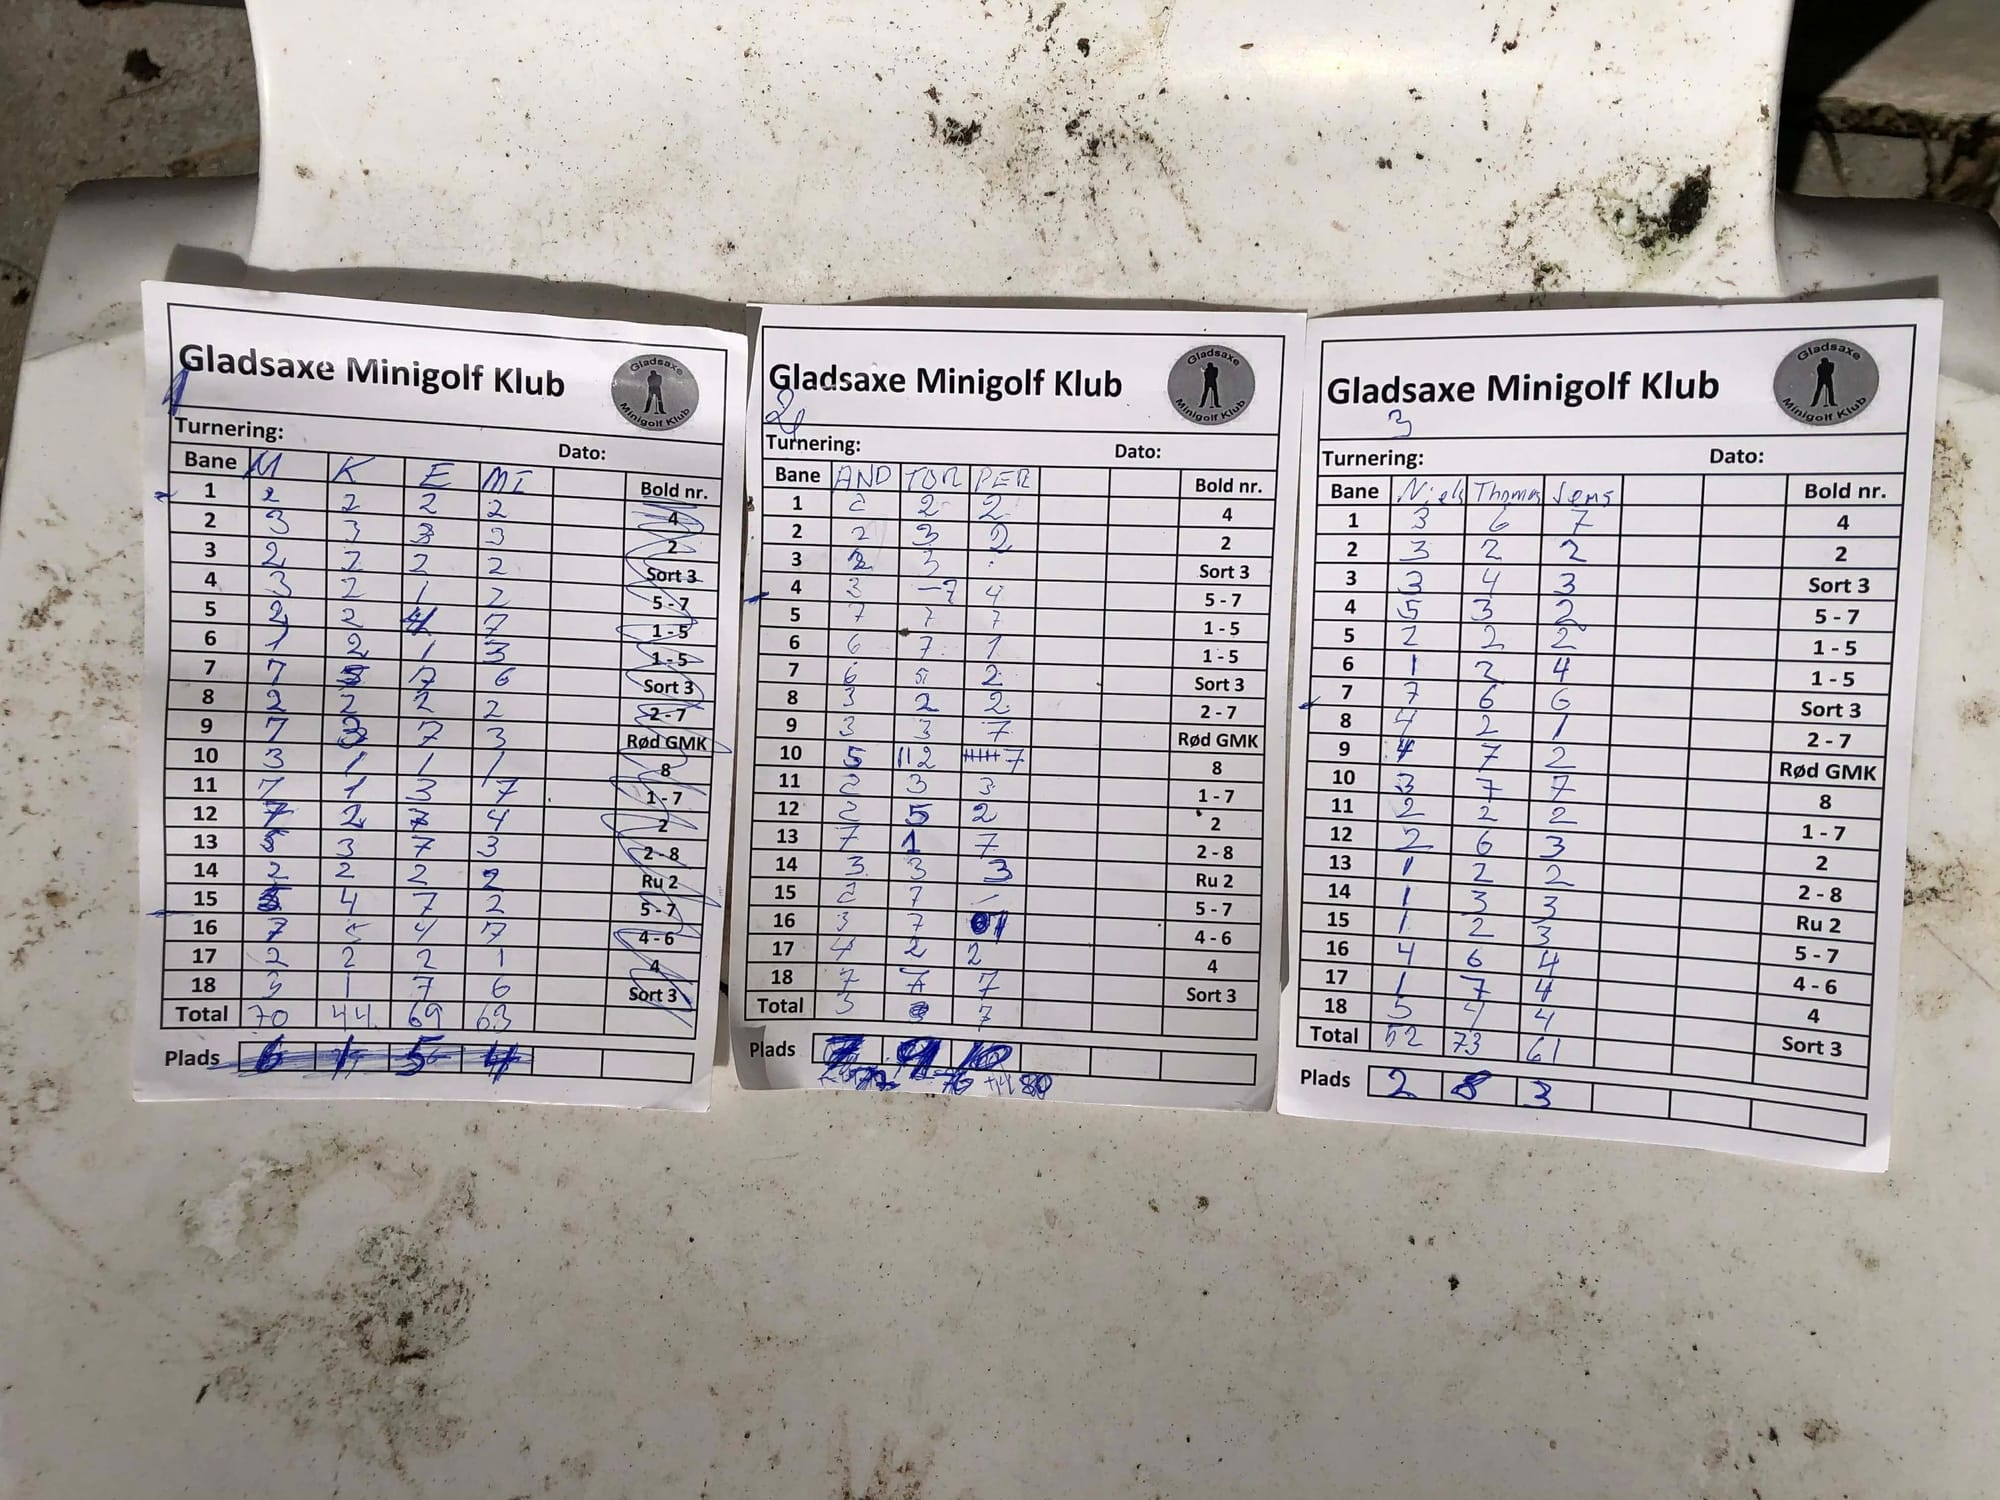 Gladsaxe Minigolf Klub
Gladsaxe
Minigolf Klub
1
Turnering: Dato:
Bane M K E MI Bold nr.
1 2 2 2 2 4
2 3 3 3 3 2
3 2 2 2 2 Sort 3
4 3 2 1 2 5 - 7
5 2 2 4 7 1 - 5
6 1 2 1 3 1 - 5
7 7 17 6 Sort 3
8 2 2 2 2 2 - 7
9 7 3 7 3 Rød GMK
10 3 1 1 1 8
11 7 1 3 7 1 - 7
12 7 2 7 4 2
13 5 3 7 3 2 - 8
14 2 2 2 2 Ru 2
15 4 7 2 5 - 7
16 7 5 4 7 4 - 6
17 2 2 2 1 4
18 3 1 7 6 Sort 3
Total 70 44 69 63
Plads 6 1 5 4
Gladsaxe Minigolf Klub
Gladsaxe
Minigolf Klub
2
Turnering: Dato:
Bane AND TOR PER Bold nr.
1 2 2 2 4
2 2 3 2 2
3 3 Sort 3
4 3 -7 4 5 - 7
5 7 7 7 1 - 5
6 6 7 1 1 - 5
7 6 5 2 Sort 3
8 3 2 2 2 - 7
9 3 3 7 Rød GMK
10 5 112 7 8
11 2 3 3 1 - 7
12 2 5 2 2
13 7 1 7 2 - 8
14 3 3 3 Ru 2
15 2 7 - 5 - 7
16 3 7 4 - 6
17 4 2 2 4
18 7 7 7 Sort 3
Total 3 7
Plads 7 9 10
72 76 80
Gladsaxe Minigolf Klub
Gladsaxe
Minigolf Klub
3
Turnering: Dato:
Bane Niels Thomas Jens Bold nr.
1 3 6 7 4
2 3 2 2 2
3 3 4 3 Sort 3
4 5 3 2 5 - 7
5 2 2 2 1 - 5
6 1 2 4 1 - 5
7 7 6 6 Sort 3
8 4 2 1 2 - 7
9 4 7 2 Rød GMK
10 3 7 7 8
11 2 2 2 1 - 7
12 2 6 3 2
13 1 2 2 2 - 8
14 1 3 3 Ru 2
15 1 2 3 5 - 7
16 4 6 4 4 - 6
17 1 7 4 4
18 5 4 4 Sort 3
Total 52 73 61
Plads 2 8 3